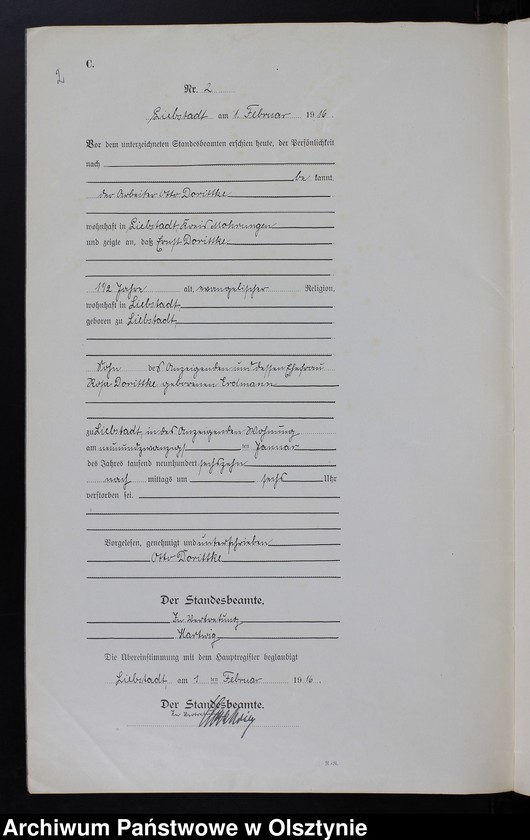 2
C.
Nr. 2
Liebstadt am 1. Februar 1916.
Vor dem unterzeichneten Standesbeamten erschien heute, der Persönlichkeit
nach
be kannt,
der Arbeiter Otto Dorittke
wohnhaft in Liebstadt Kreis Mohrungen
und zeigte an, daß Ernst Dorittke
1 1/2 Jahre alt, evangelischer Religion,
wohnhaft in Liebstadt
geboren zu Liebstadt
Sohn des Anzeigenden und dessen Ehefrau
Rosa Dorittke geborenen Erdmann
zu Liebstadt, in des Anzeigenden Wohnung
am neunundzwanzigsten Januar
des Jahres tausend neunhundert sechszehn
nach mittags um sechs Uhr
verstorben sei.
Vorgelesen, genehmigt und unterschrieben
Otto Dorittke
Der Standesbeamte.
In Vertretung
Hartwig
Die Übereinstimmung mit dem Hauptregister beglaubigt
Liebstadt am 1 ten Februar 1916.
Der Standesbeamte.
Hartwig
Archiwum Państwowe w Olsztynie